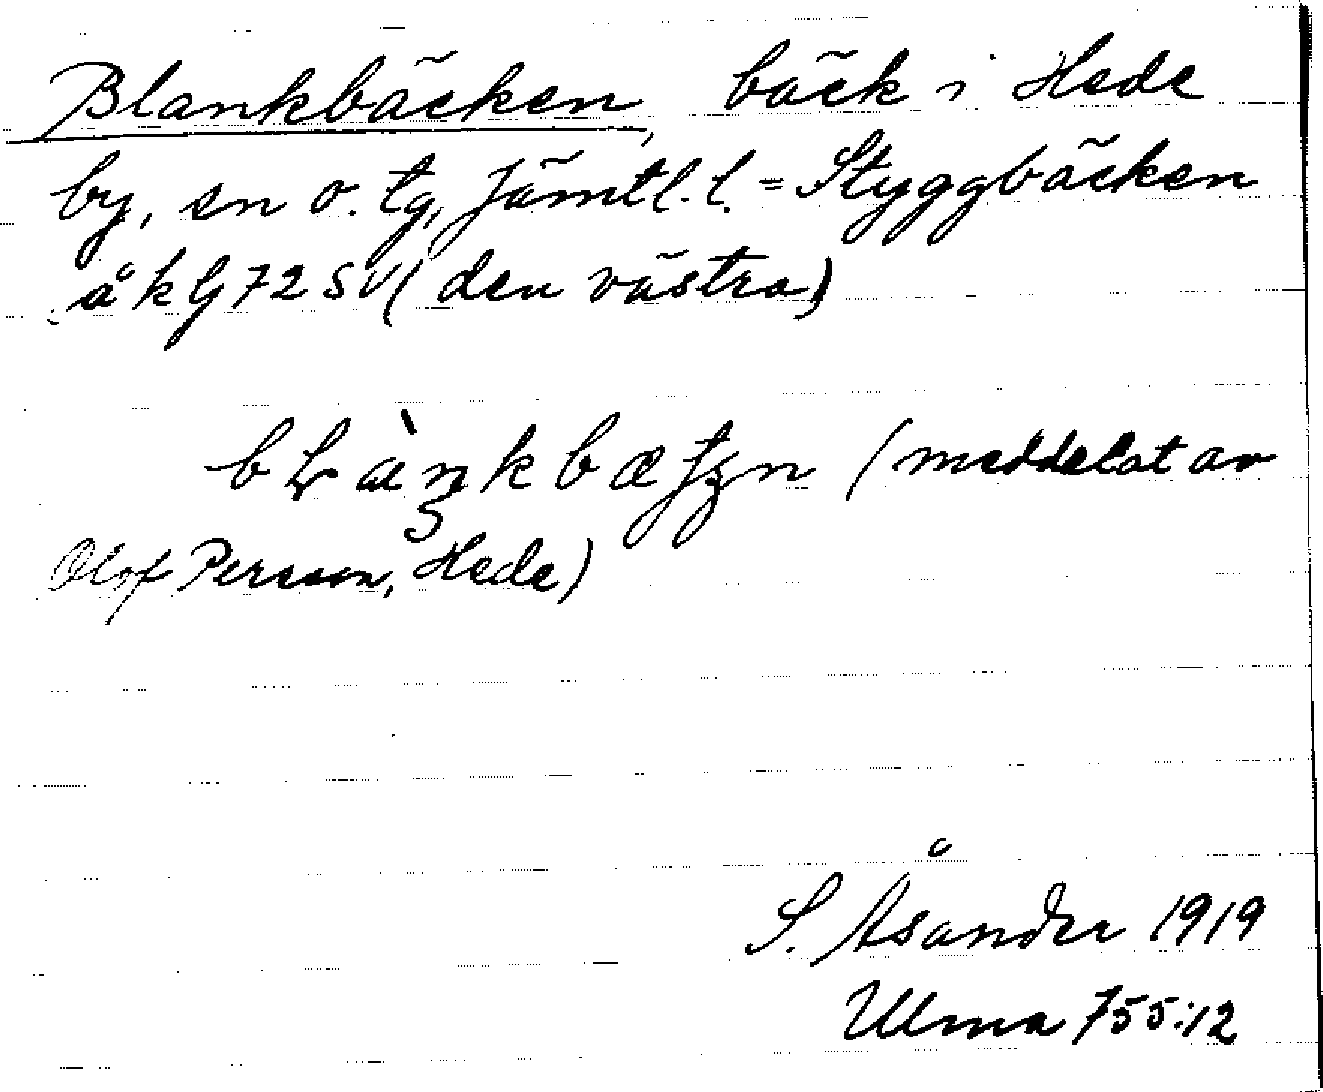 Blankbäcken, bäck i Hede
by, sn o. tg, Jämtl. l. = Styggbäcken
å kbl 72 SV (den västra)
(meddelat av
Olof Persson, Hede)
S. Åsander 1919
Ulma 755:12